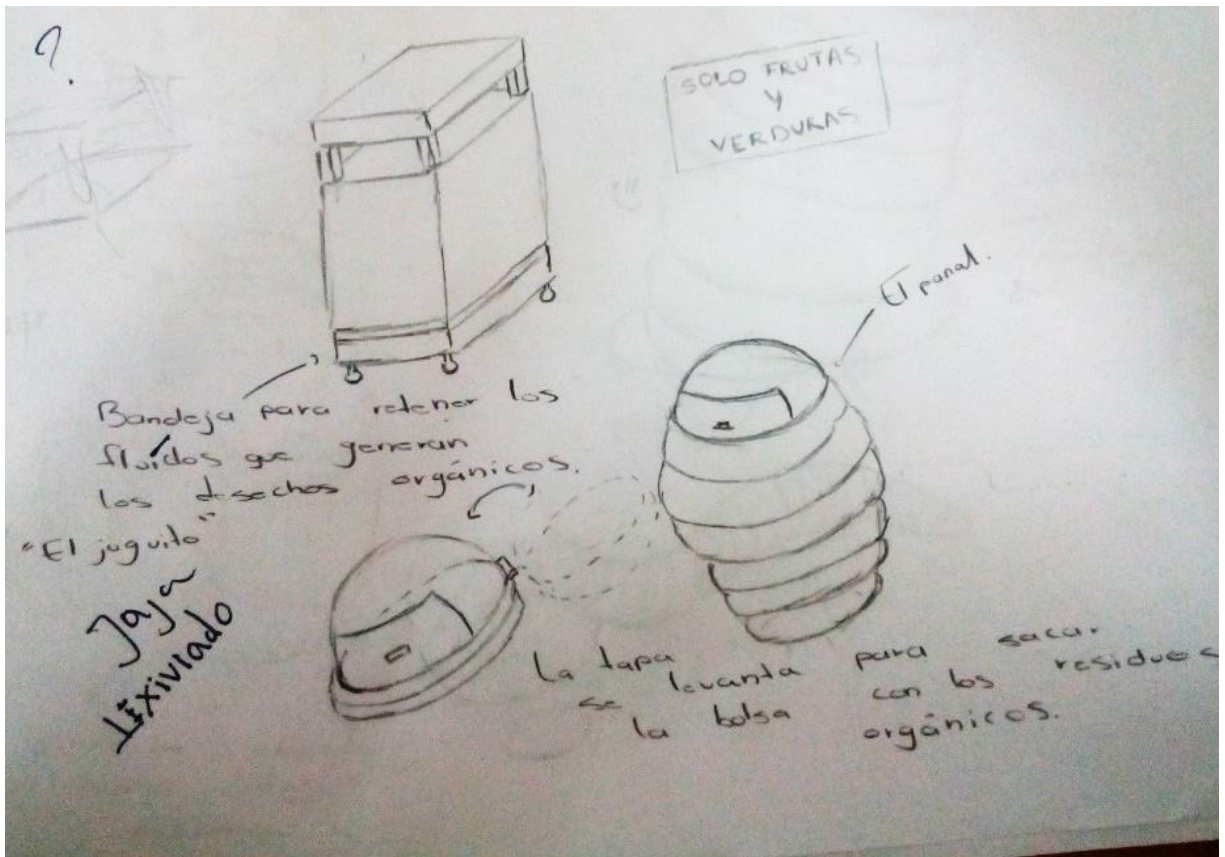 ?
SOLO FRUTAS
Y
VERDURAS
El panal.
Bandeja para retener los
fluídos que generan
los desechos orgánicos.
"El juguito"
Jaja
Lixiviado
La tapa
se levanta para sacar
la bolsa con los residuos
orgánicos.